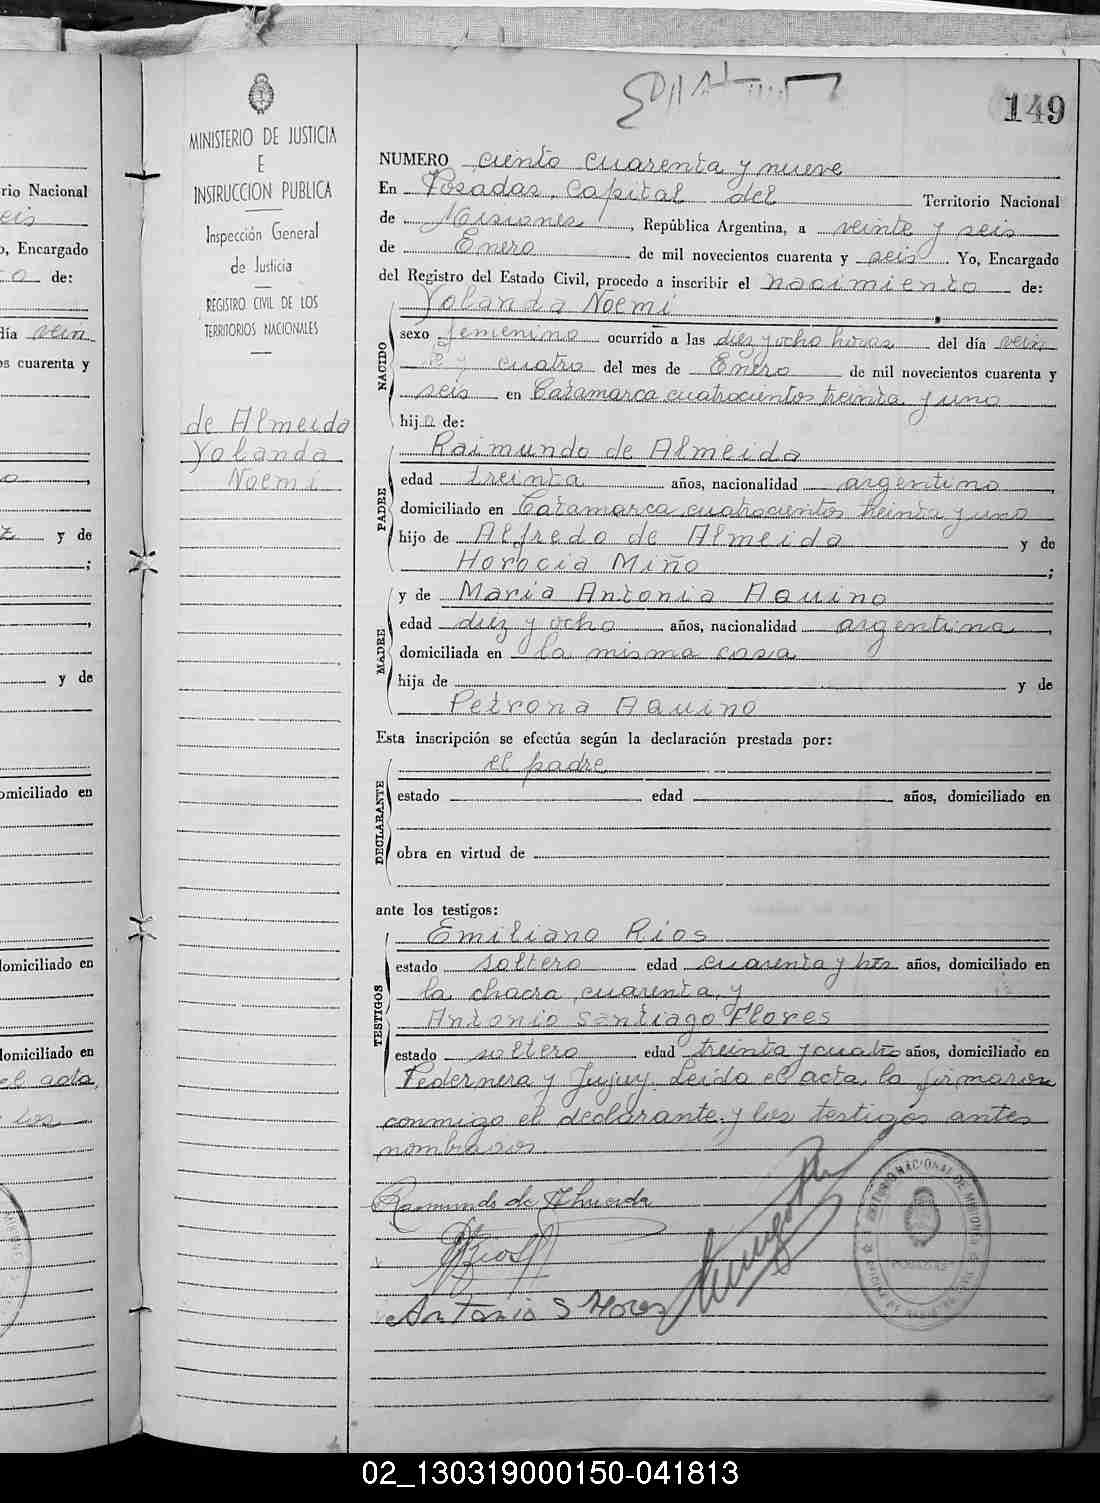 149
MINISTERIO DE JUSTICIA
E
INSTRUCCION PUBLICA
Inspección General
de Justicia
REGISTRO CIVIL DE LOS
TERRITORIOS NACIONALES
de Almeida
Yolanda
Noemi
NUMERO ciento cuarenta y nueve
En Posadas, Capital del Territorio Nacional
de Misiones, República Argentina, a veinte y seis
de Enero de mil novecientos cuarenta y seis. Yo, Encargado
del Registro del Estado Civil, procedo a inscribir el nacimiento de:
NACIDO
Yolanda Noemi
sexo femenino ocurrido a las diez y ocho horas del día vein
te y cuatro del mes de Enero de mil novecientos cuarenta y
seis en Catamarca cuatrocientos treinta y uno
hija de:
PADRE
Raimundo de Almeida
edad treinta años, nacionalidad argentino,
domiciliado en Catamarca cuatrocientos treinta y uno
hijo de Alfredo de Almeida y de
Horocia Miño;
MADRE
y de Maria Antonia Aquino
edad diez y ocho años, nacionalidad argentina,
domiciliada en la misma casa
hija de y de
Petrona Aquino
Esta inscripción se efectúa según la declaración prestada por:
DECLARANTE
el padre
estado edad años, domiciliado en
obra en virtud de
ante los testigos:
TESTIGOS
Emiliano Rios
estado soltero edad cuarenta y tres años, domiciliado en
la chacra cuarenta, y
Antonio Santiago Flores
estado soltero edad treinta y cuatro años, domiciliado en
Pedernera y Jujuy. Leída el acta, la firmaron
conmigo el declarante y los testigos antes
nombrados.
Raimundo de Almeida
Rios
Antonio S Flores
POSADAS
rio Nacional
eis
o, Encargado
o de:
día vein
os cuarenta y
y de
;
y de
omiciliado en
domiciliado en
domiciliado en
el acta,
los
02_130319000150-041813